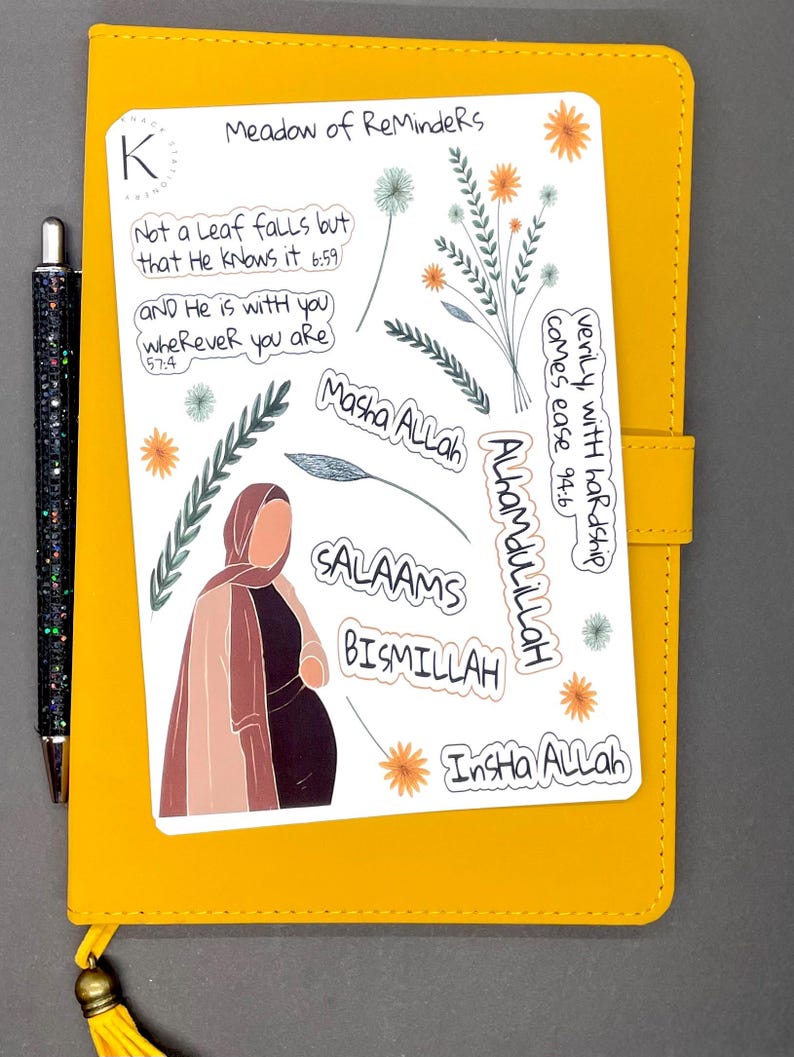 KNACK STATIONERY
K
Meadow of ReMindeRs
Not a Leaf faLLs but
that He kNows it 6:59
aND He is witH you
wheReveR you aRe
57:4
veRiLy, witH haRdship
coMes ease 94:6
Masha ALLah
ALHaMduLiLLaH
sALAAMS
BISMILLAH
InsHa ALLah